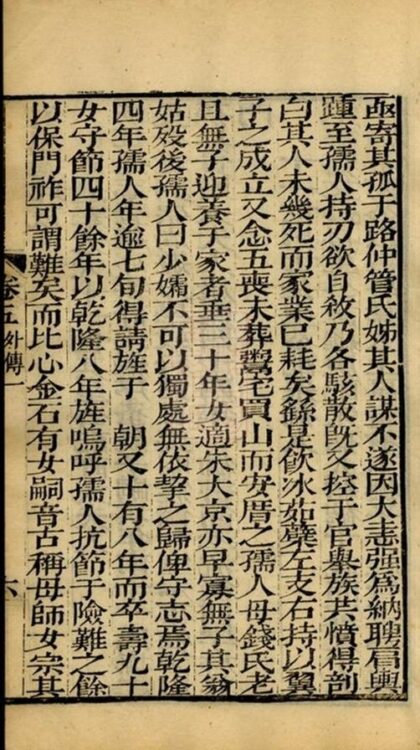 亟寄其孤于路仲管氏姊其人謀不遂因大恚强爲納聘肩輿
踵至孺人持刃欲自救乃各駭散既又控于官舉族共憤得剖
白其人未幾死而家業已耗矣繇是飲冰茹蘗左支右持以翼
子之成立又念五喪未葬鬻宅買山而安厝之孺人母錢氏老
且無子迎養于家者垂三十年女適朱大京亦早寡無子其翁
姑歿後孺人曰少孀不可以獨處無依挈之歸俾守志焉乾隆
四年孺人年逾七旬得請旌于 朝又十有八年而卒壽九十
女守節四十餘年以乾隆八年旌嗚呼孺人抗節于險難之餘
以保門祚可謂難矣而比心金石有女嗣音古稱母師女宗其
卷五外傳一 六